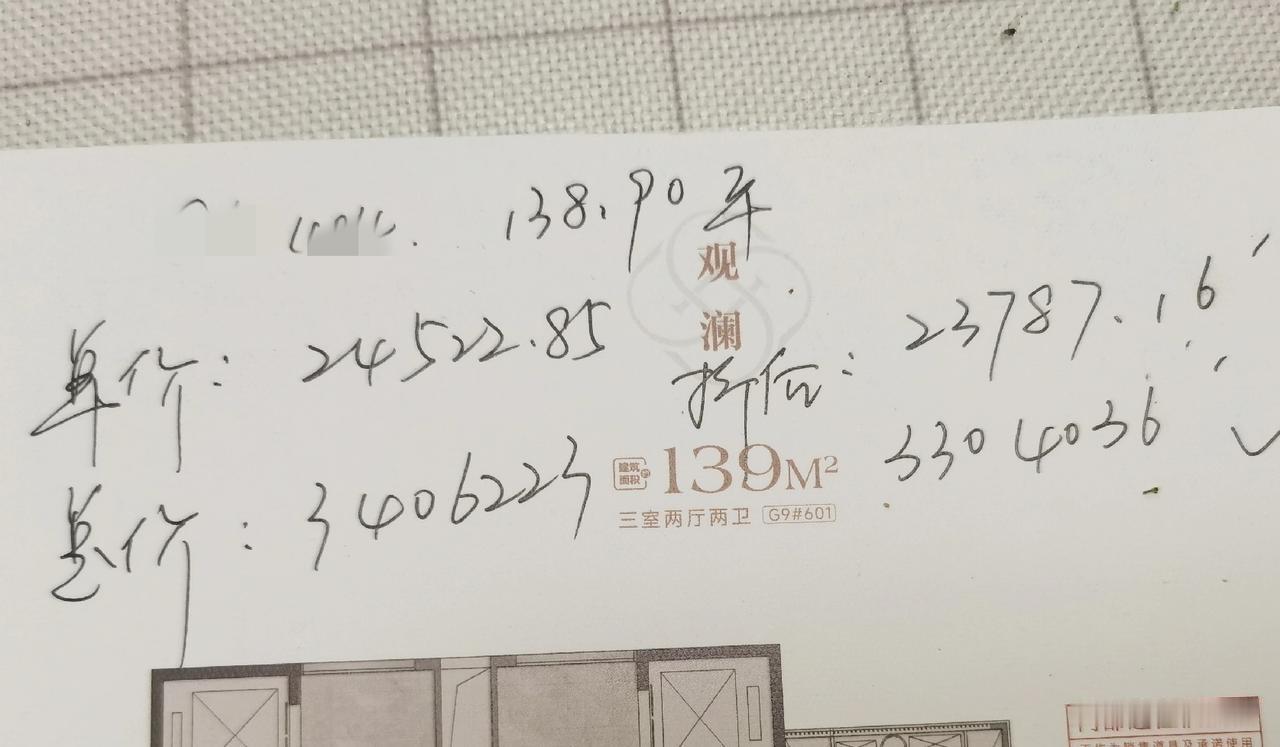 138.90平
观澜
单价: 24522.85 折后: 23787.16
总价: 3406223 3304036
建筑面积约 139M²
三室两厅两卫 G9#601